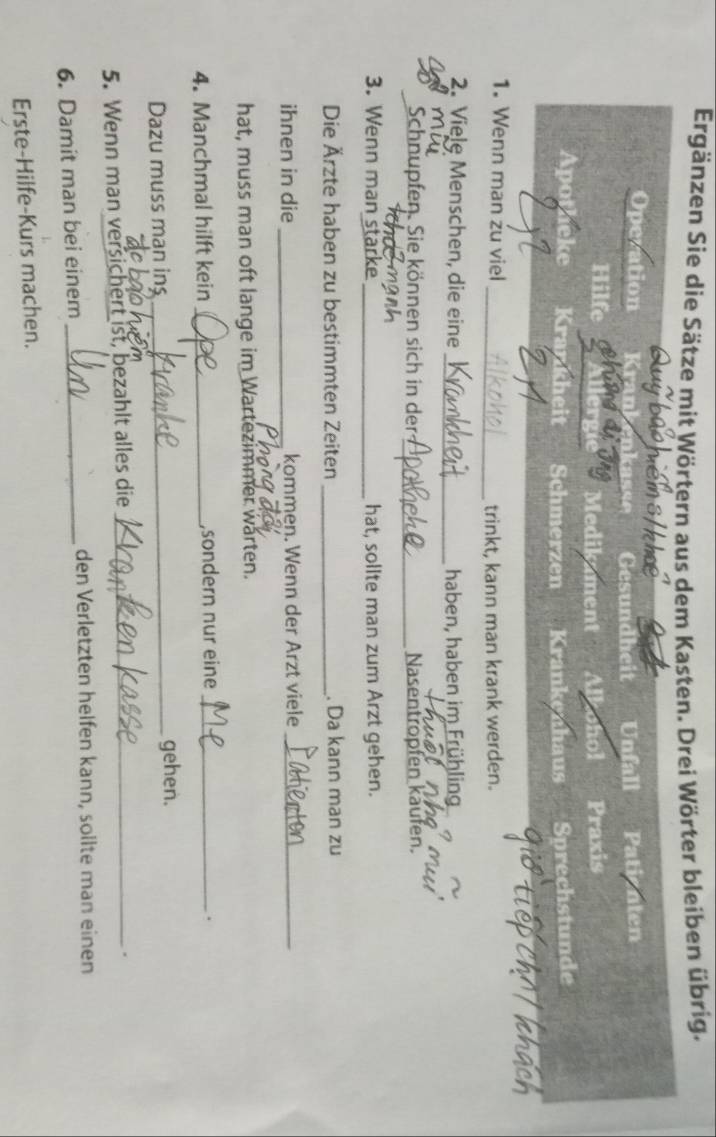 Ergänzen Sie die Sätze mit Wörtern aus dem Kasten. Drei Wörter bleiben übrig.
Quỹ bảo hiểm s/khoẻ
Operation Krankenkasse Gesundheit Unfall Patienten
Hilfe Allergie Medikament Alkohol Praxis
chứng dị ứng
Apotheke Krankheit Schmerzen Krankenhaus Sprechstunde
giờ tiếp chn/khách
1. Wenn man zu viel Alkohol trinkt, kann man krank werden.
2. Viele Menschen, die eine Krankheit haben, haben im Frühling
sổ mũi thuốc nhỏ mũi
Schnupfen. Sie können sich in der Apotheke Nasentropfen kaufen.
3. Wenn man starke hat, sollte man zum Arzt gehen.
Die Ärzte haben zu bestimmten Zeiten . Da kann man zu
ihnen in die kommen. Wenn der Arzt viele Patienten
phòng đợi
hat, muss man oft lange im Wartezimmer warten.
4. Manchmal hilft kein Ope ,sondern nur eine Me .
Dazu muss man ins Kranke gehen.
đc bảo hiểm
5. Wenn man versichert ist, bezahlt alles die Krankenkasse .
6. Damit man bei einem Un den Verletzten helfen kann, sollte man einen
Erste-Hilfe-Kurs machen.